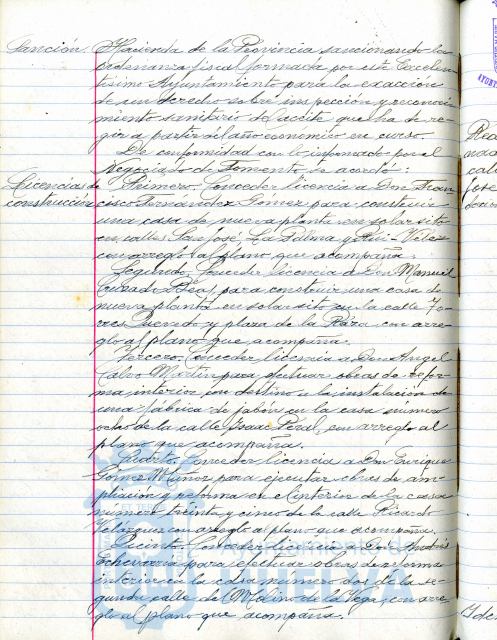 Sanción. Hacienda de la Provincia sancionando la
ordenanza fiscal formada por este Excelen-
tísimo Ayuntamiento para la exacción
de un derecho sobre inspección y reconoci-
miento sanitario de aceite que ha de re-
gir a partir del año económico en curso.
De conformidad con lo informado por el
Negociado de Fomento se acordó:
Licencias de Primero. Conceder licencia a Don Fran-
construcción cisco Fernández Gómez para construir
una casa de nueva planta en solar sito
en calles San José, La Palma y Rui-Vélez
con arreglo al plano que acompaña.
Segundo. Conceder licencia a Don Manuel
para construir una casa de
nueva planta en solar sito en la calle
Quevedo y plaza de la con arre-
glo al plano que acompaña.
Tercero. Conceder licencia a Don Angel
Calvo Martín para efectuar obras de refor-
ma interior con destino a la instalación de
una fábrica de jabón en la casa número
ocho de la calle Isaac Peral, con arreglo al
plano que acompaña.
Cuarto. Conceder licencia a Don Enrique
Gómez Muñoz para ejecutar obras de am-
pliación y reforma en el interior de la casa
número treinta y cinco de la calle Ricardo
Velázquez con arreglo al plano que acompaña.
Quinto. Conceder licencia a Don Andrés
Echevarría para efectuar obras de reforma
interior en la casa número dos de la se-
gunda calle de Molino de la Vega, con arre-
glo al plano que acompaña.